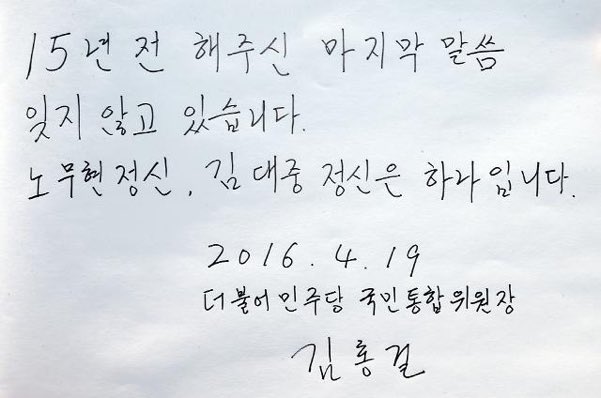 15년 전 해주신 마지막 말씀
잊지 않고 있습니다.
노무현정신, 김대중 정신은 하나입니다.
2016. 4. 19
더불어민주당 국민통합위원장
김홍걸